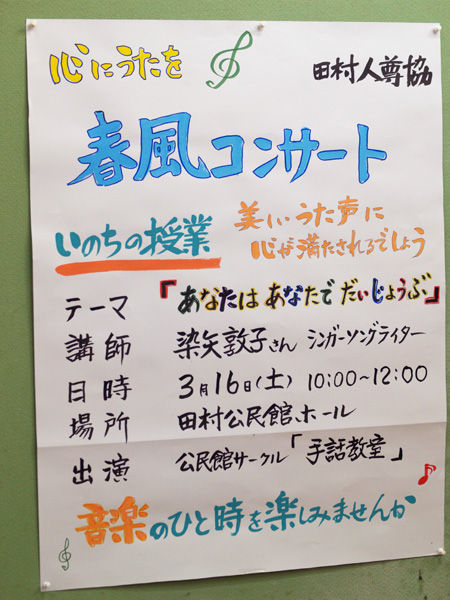 心にうたを
田村人尊協
春風コンサート
いのちの授業
美しいうた声に
心が満たされるでしょう
テーマ 『あなたは あなたで だいじょうぶ』
講師 染矢敦子さん シンガーソングライター
日時 3月16日(土) 10:00~12:00
場所 田村公民館、ホール
出演 公民館サークル「手話教室」
音楽のひと時を楽しみませんか